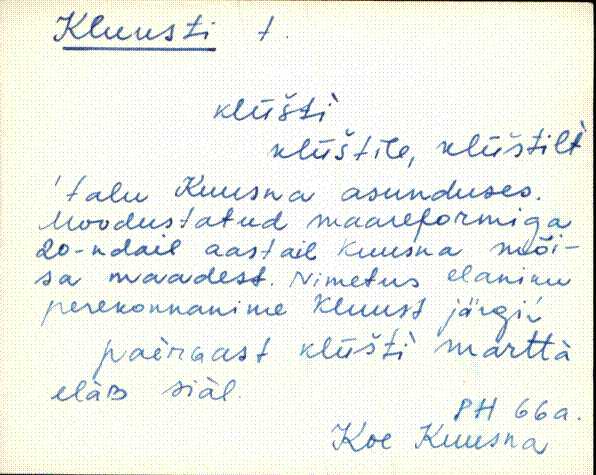 Kluusti t.
klūšti
klūštile, klūštilt
'talu Kuusna asunduses.
Moodustatud maareformiga
20-ndail aastail Kuusna mõi-
sa maadest. Nimetus elaniku
perekonnanime Kluust järgi'
paèrgast klūšti marttà
elàB siäl.
PH 66a.
Koe Kuusna